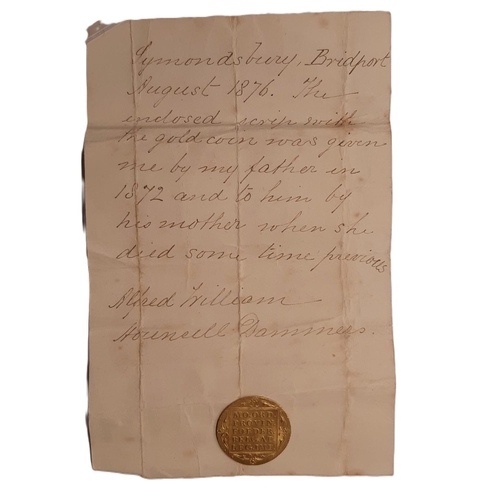 Symondsbury, Bridport
August 1876. The
enclosed scrip with
the gold coin was given
me by my father in
1872 and to him by
his mother when she
died some time previous
Alfred William
Hounsell Dammers.
PROVIN
FOEDER
BELG.AD